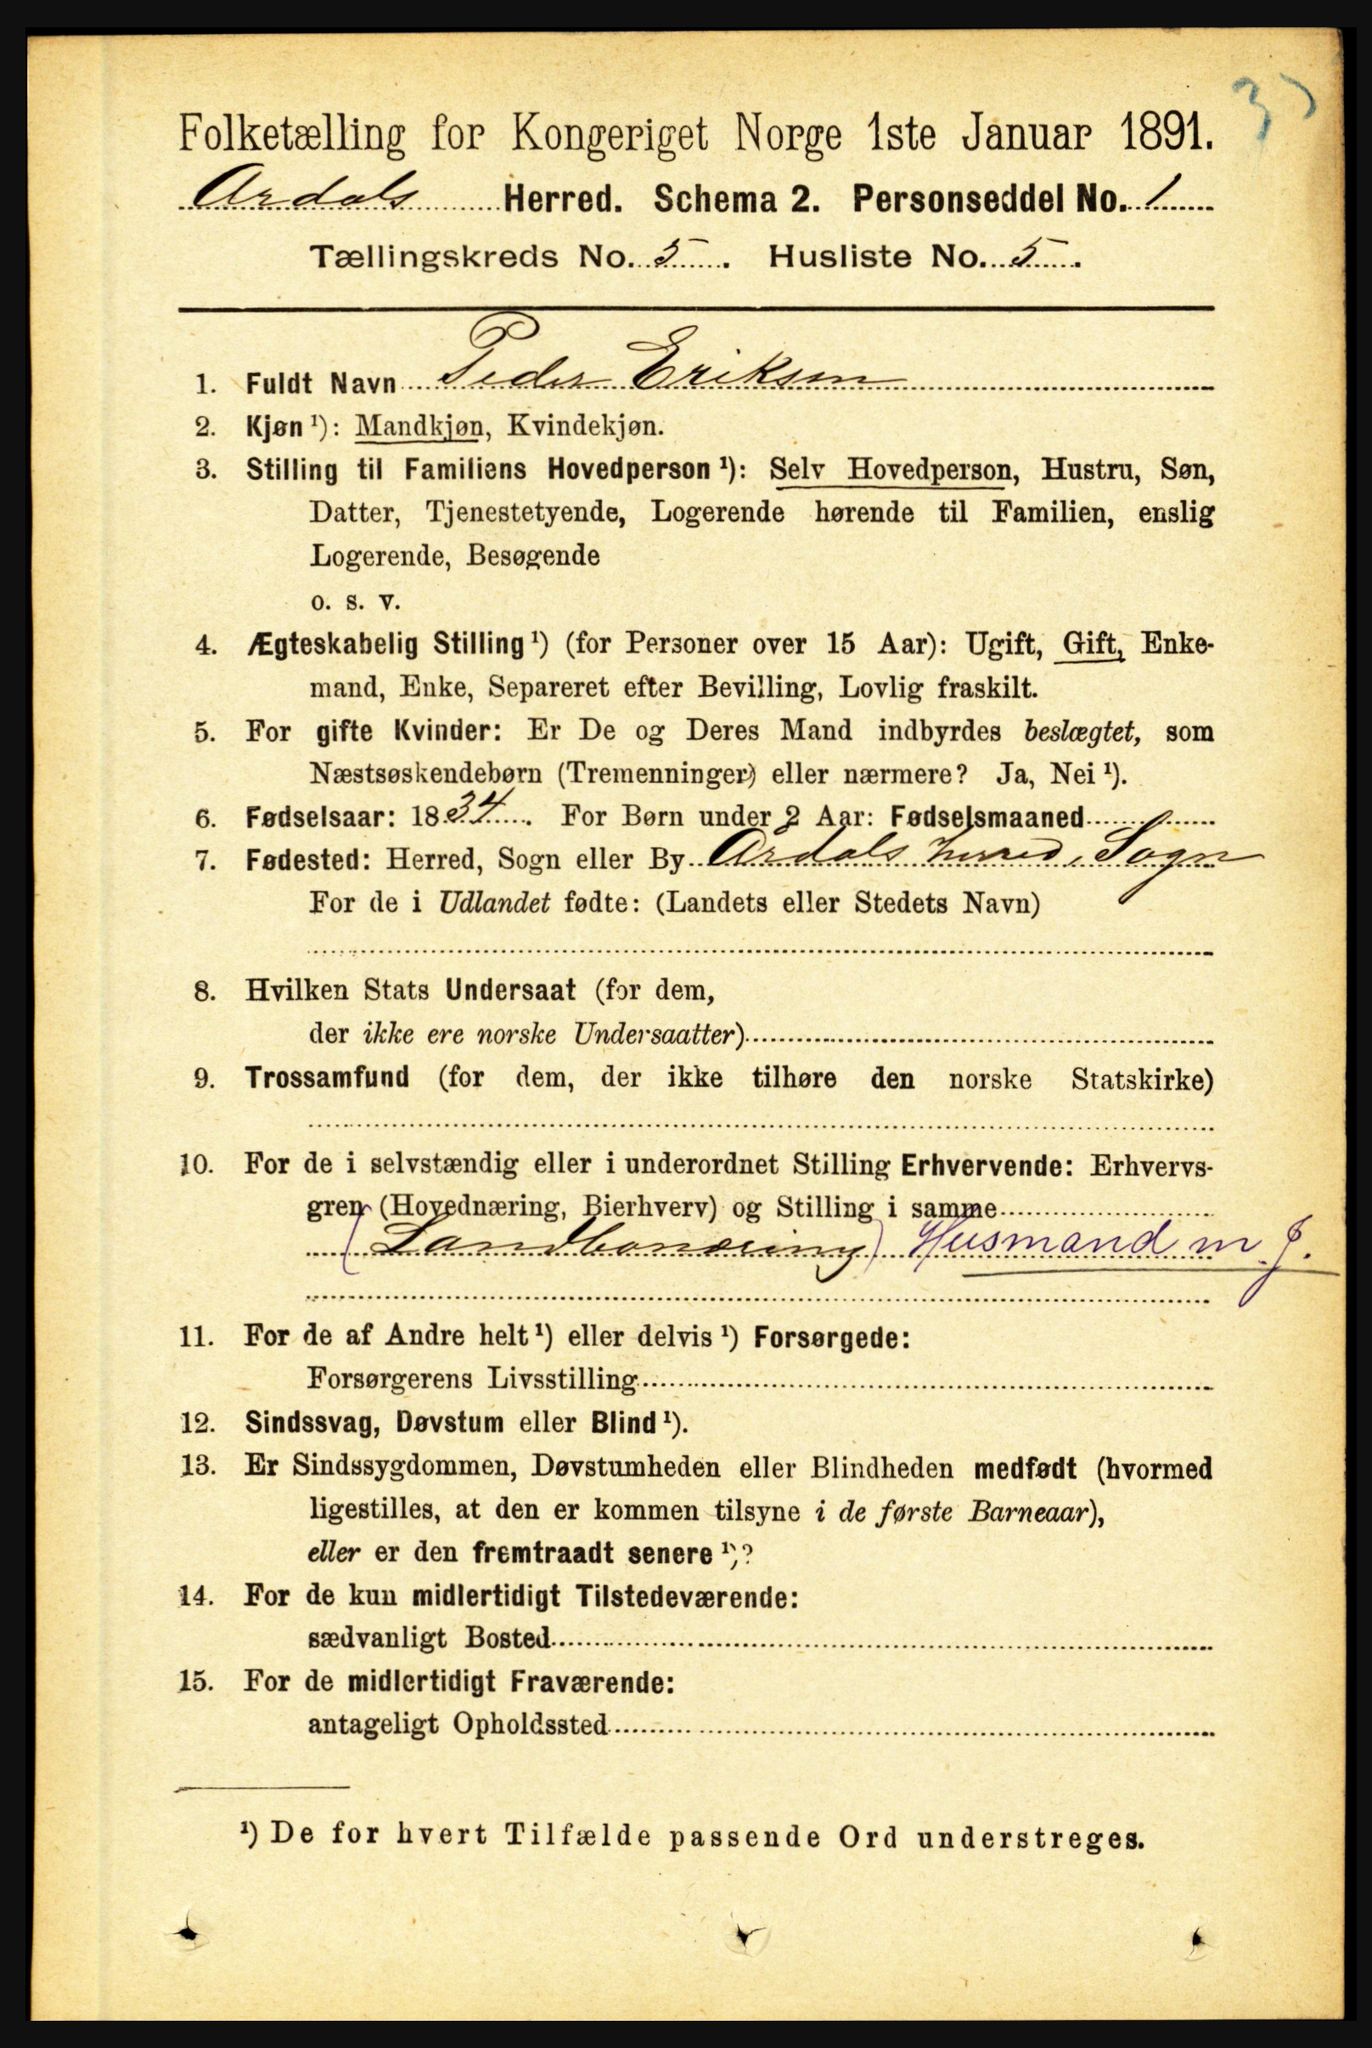 3
Folketælling for Kongeriget Norge 1ste Januar 1891.
Ardals Herred. Schema 2. Personseddel No. 1
Tællingskreds No. 5. Husliste No. 5.
1. Fuldt Navn Peder Eriksen
2. Kjøn ¹): Mandkjøn, Kvindekjøn.
3. Stilling til Familiens Hovedperson ¹): Selv Hovedperson, Hustru, Søn,
Datter, Tjenestetyende, Logerende hørende til Familien, enslig
Logerende, Besøgende
o. s. v.
4. Ægteskabelig Stilling ¹) (for Personer over 15 Aar): Ugift, Gift, Enke-
mand, Enke, Separeret efter Bevilling, Lovlig fraskilt.
5. For gifte Kvinder: Er De og Deres Mand indbyrdes beslægtet, som
Næstsøskendebørn (Tremenninger) eller nærmere? Ja, Nei ¹).
6. Fødselsaar: 1834. For Børn under 2 Aar: Fødselsmaaned
7. Fødested: Herred, Sogn eller By Ardals herred, Sogn
For de i Udlandet fødte: (Landets eller Stedets Navn)
8. Hvilken Stats Undersaat (for dem,
der ikke ere norske Undersaatter)
9. Trossamfund (for dem, der ikke tilhøre den norske Statskirke)
10. For de i selvstændig eller i underordnet Stilling Erhvervende: Erhvervs-
gren (Hovednæring, Bierhverv) og Stilling i samme
(Landbonæring) Husmand m. J.
11. For de af Andre helt ¹) eller delvis ¹) Forsørgede:
Forsørgerens Livsstilling
12. Sindssvag, Døvstum eller Blind ¹).
13. Er Sindssygdommen, Døvstumheden eller Blindheden medfødt (hvormed
ligestilles, at den er kommen tilsyne i de første Barneaar),
eller er den fremtraadt senere ¹)?
14. For de kun midlertidigt Tilstedeværende:
sædvanligt Bosted
15. For de midlertidigt Fraværende:
antageligt Opholdssted
¹) De for hvert Tilfælde passende Ord understreges.